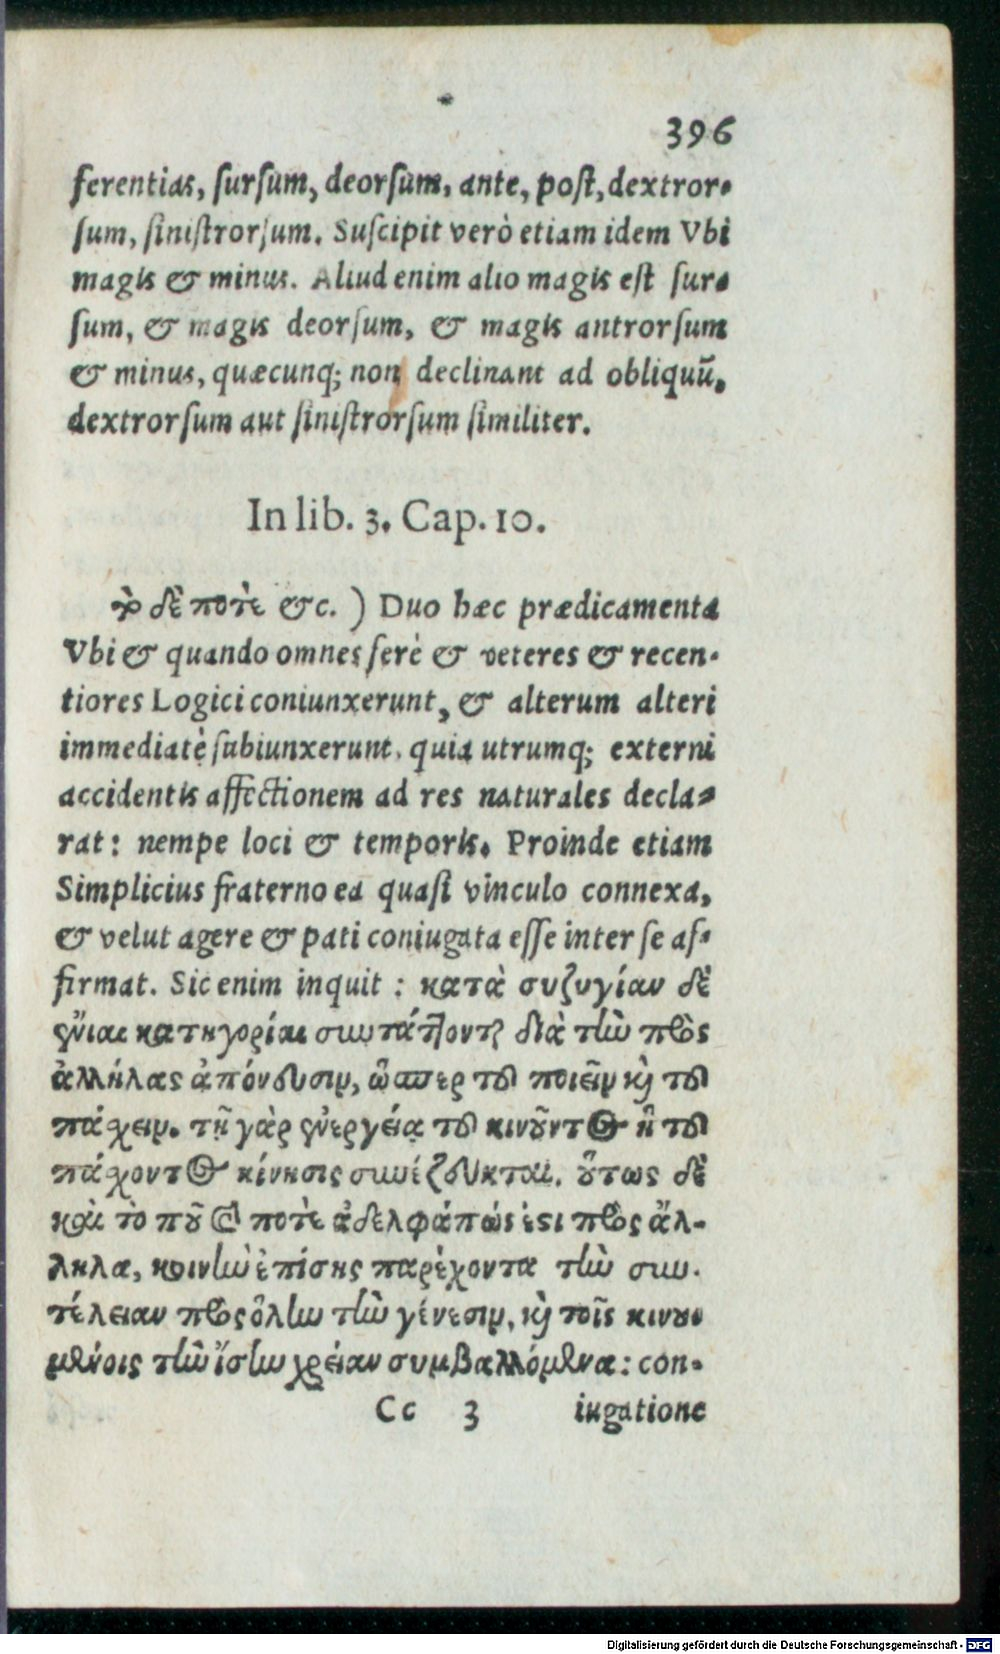 396
ferentias, ſurſum, deorſum, ante, poſt, dextror-
ſum, ſiniſtrorſum. Suſcipit verò etiam idem Vbi
magis & minus. Aliud enim alio magis eſt ſur-
ſum, & magis deorſum, & magis antrorſum
& minus, quæcunq; non declinant ad obliquũ,
dextrorſum aut ſiniſtrorſum ſimiliter.
In lib. 3. Cap. 10.
τὸ δὲ ποτὲ &c. ) Duo hæc prædicamenta
Vbi & quando omnes ferè & veteres & recen-
tiores Logici coniunxerunt, & alterum alteri
immediatè ſubiunxerunt, quia utrumq; externi
accidentis affectionem ad res naturales decla-
rat: nempe loci & temporis. Proinde etiam
Simplicius fraterno ea quaſi vinculo connexa,
& velut agere & pati coniugata eſſe inter ſe af-
firmat. Sic enim inquit : κατὰ συζυγίαν δὲ
ἔνιαι κατηγορίαι συντάττονται διὰ τὴν πρὸς
ἀλλήλας ἀπόνευσιν, ὥσπερ τοῦ ποιεῖν καὶ τοῦ
πάχειν. τῇ γὰρ ἐνεργείᾳ τοῦ κινοῦντος ἡ τοῦ
πάχοντος κίνησις συνέζευκται. οὕτως δὲ
καὶ τὸ ποῦ καὶ ποτὲ ἀδελφά πώς ἐστι πρὸς ἄλ-
ληλα, κοινὴν ἐπίσης παρέχοντα τὴν συν-
τέλειαν πρὸς ὅλην τὴν γένεσιν, καὶ τοῖς κινου-
μένοις τὴν ἴσην χρείαν συμβαλλόμενα: con-
Cc 3 iugatione
Digitalisierung gefördert durch die Deutsche Forschungsgemeinschaft - DFG